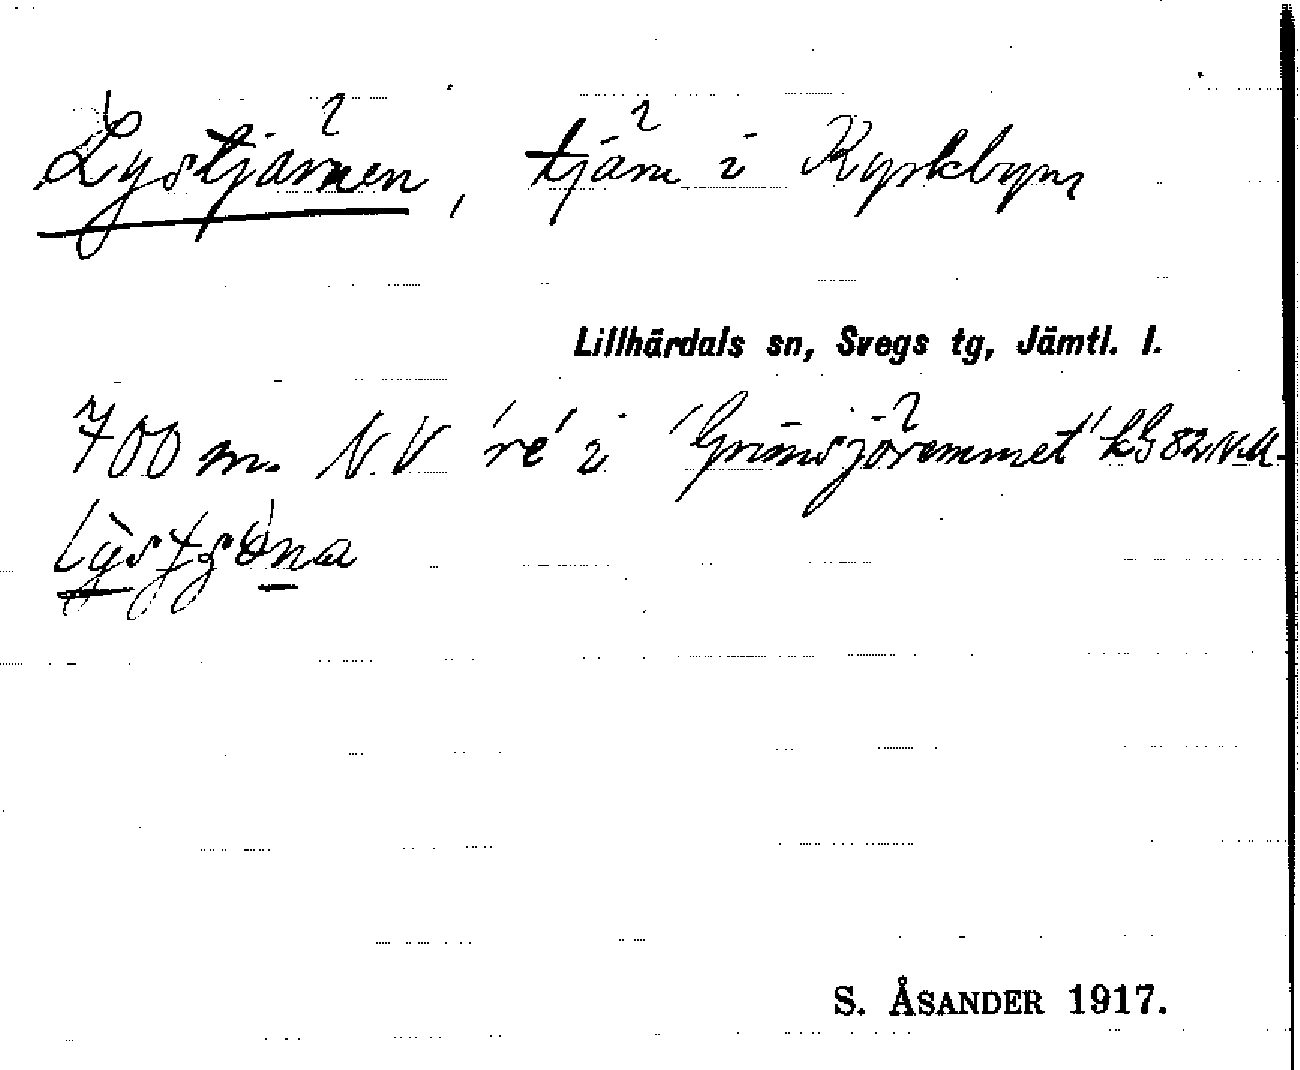 Lystjärnen, tjärn i Kyrkbyn
Lillhärdals sn, Svegs tg, Jämtl. l.
700 m. N.V "re" i "Grundsjöremmet" kb 82 N.V.
S. ÅSANDER 1917.